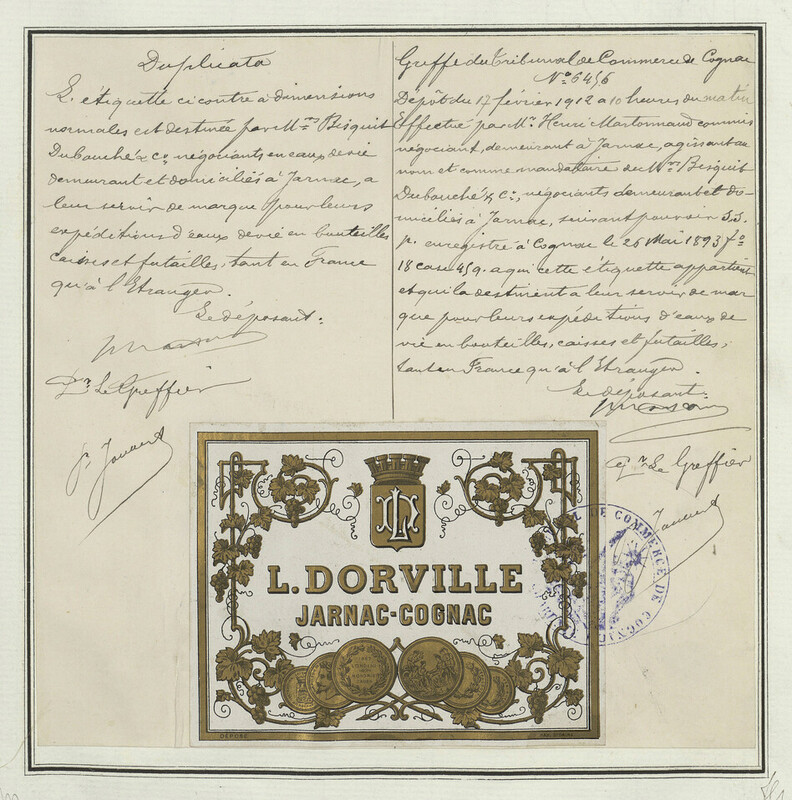 Duplicata
L'étiquette ci contre à dimensions
normales est destinée par Mrs Bisquit
Dubouché & Co négociants en eaux de vie
demeurant et domiciliés à Jarnac, a
leur servir de marque pour leurs
expéditions d'eaux de vie en bouteilles
caisses et futailles, tant en France
qu'à l'Etranger.
Le déposant:
Pr Le Greffier
Greffe du Tribunal de Commerce de Cognac
No 6456
Dépôt du 17 février 1912 a 10 heures du matin
Effectué par Mr Henri Martonnaud commis
négociant, demeurant à Jarnac, agissant au
nom et comme mandataire de Mrs Bisquit
Dubouché & Co, négociants demeurant et do-
miciliés à Jarnac, suivant pouvoir S.S.
p. enregistré à Cognac le 26 Mai 1893 fo
18 case 459. a qui cette étiquette appartient
et qui la destinent a leur servir de mar
que pour leurs expéditions d'eaux de
vie en bouteilles, caisses et futailles,
tant en France qu'à l'Etranger.
Le déposant:
Pr Le Greffier
LD
L. DORVILLE
JARNAC-COGNAC
DÉPOSÉ
DE COMMERCE DE COGNAC